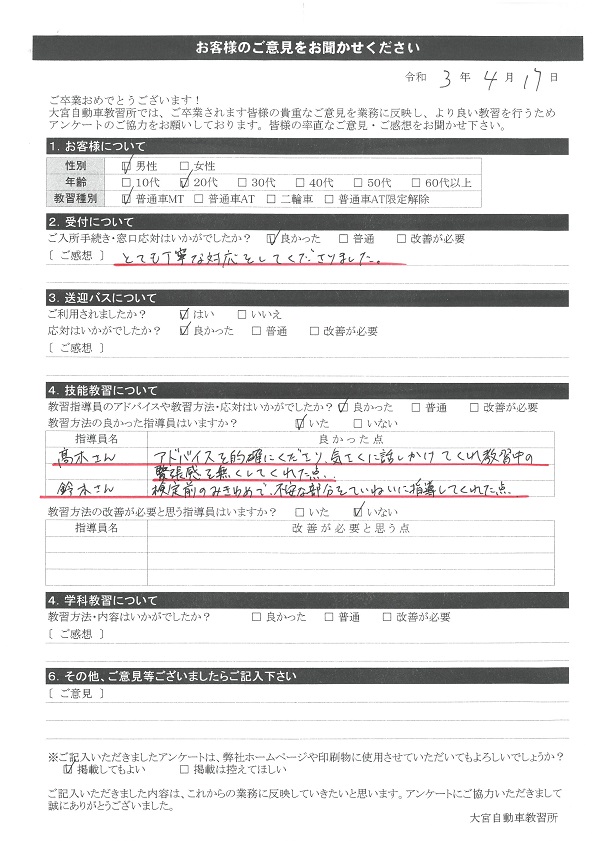 お客様のご意見をお聞かせください
令和 3 年 4 月 17 日
ご卒業おめでとうございます！
大宮自動車教習所では、ご卒業されます皆様の貴重なご意見を業務に反映し、より良い教習を行うため
アンケートのご協力をお願いしております。皆様の率直なご意見・ご感想をお聞かせ下さい。
1. お客様について
性別 ☑男性 □女性
年齢 □10代 ☑20代 □30代 □40代 □50代 □60代以上
教習種別 ☑普通車MT □普通車AT □二輪車 □普通車AT限定解除
2. 受付について
ご入所手続き・窓口応対はいかがでしたか？ ☑良かった □普通 □改善が必要
[ ご感想 ] とても丁寧な対応をしてくださりました。
3. 送迎バスについて
ご利用されましたか？ ☑はい □いいえ
応対はいかがでしたか？ ☑良かった □普通 □改善が必要
[ ご感想 ]
4. 技能教習について
教習指導員のアドバイスや教習方法・応対はいかがでしたか？ ☑良かった □普通 □改善が必要
教習方法の良かった指導員はいますか？ ☑いた □いない
指導員名 良かった点
高木さん アドバイスを的確にくださり、気さくに話しかけてくれ教習中の
緊張感を無くしてくれた点。
鈴木さん 検定前のみきわめで、不安な部分をていねいに指導してくれた点
教習方法の改善が必要と思う指導員はいますか？ □いた ☑いない
指導員名 改善が必要と思う点
4. 学科教習について
教習方法・内容はいかがでしたか？ □良かった □普通 □改善が必要
[ ご感想 ]
6. その他、ご意見等ございましたらご記入下さい
[ ご意見 ]
※ご記入いただきましたアンケートは、弊社ホームページや印刷物に使用させていただいてもよろしいでしょうか？
☑掲載してもよい □掲載は控えてほしい
ご記入いただきました内容は、これからの業務に反映していきたいと思います。アンケートにご協力いただきまして
誠にありがとうございました。
大宮自動車教習所